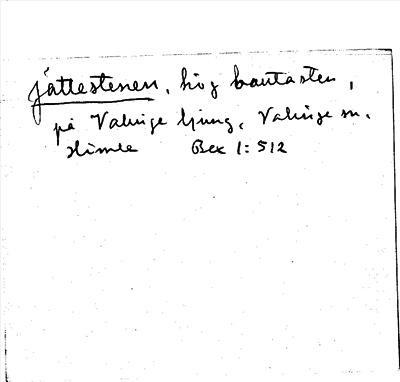 jättestenen, hög bautasten,
på Valinge ljung, Valinge sn.
Himle Bex 1: 512